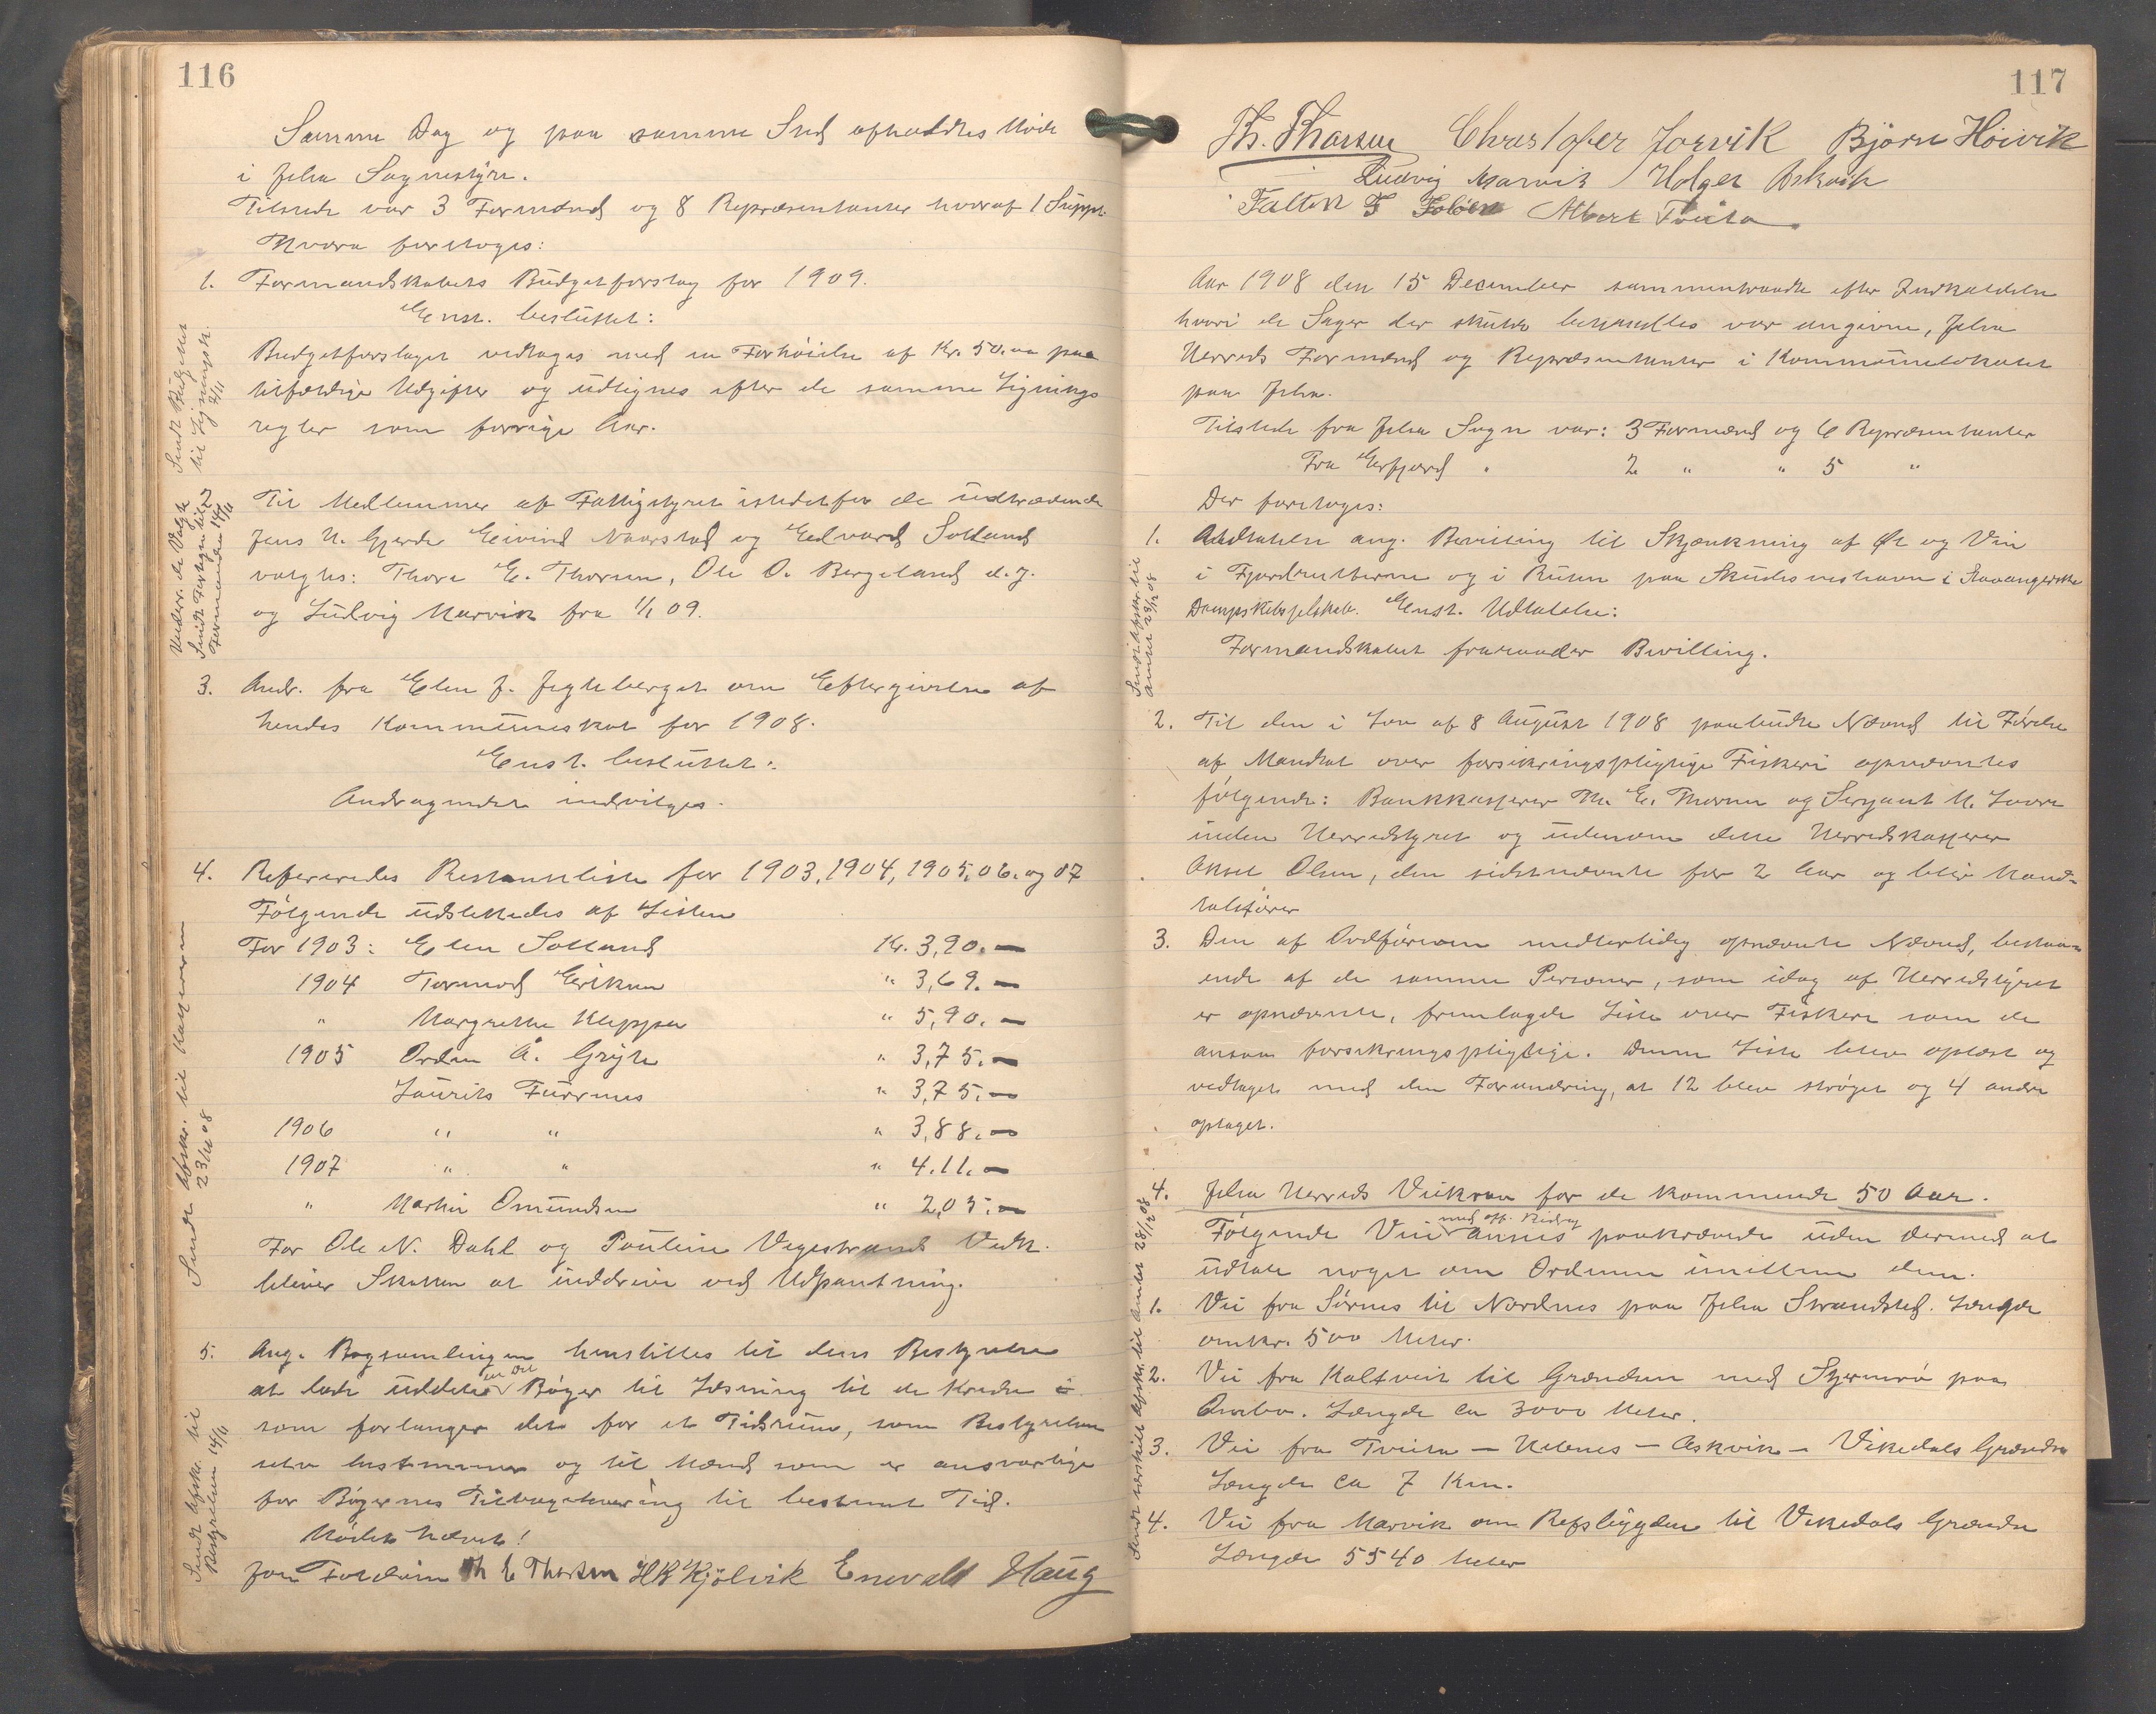 116
Samme Dag og paa samme Sted afholdtes Møde
i Jelsa Sognestyre.
Tilstede var 3 Formænd og 8 Repræsentanter hvoraf 1 Suppl.
Hvora foretoges:
1. Formandskabets Budgetforslag for 1909.
Enst. besluttet:
Budgetforslaget vedtoges med en Forhøielse af Kr. 50.00 paa
tilfældige Udgifter og udlignes efter de samme Lignings
regler som forrige Aar.
Sendt Budgettet
til Ligningsk.
2/11
2 Til Medlemmer af Fattigstyret istedetfor de udtrædende
Jens N. Gjerde Eivind Naarstad og Edvard Solland
valgtes: Thore E. Thorsen, Ole O. Bergeland d.y.
og Ludvig Marvik fra 1/1 09.
Underr. de Valgte
Sendt Fortegn. til
Formanden 14/11
3. Andr. fra Elen J. Jegteberget om Eftergivelse af
hendes Kommuneskat for 1908.
Enst. besluttet:
Andragendet indvilges.
4. Refereredes Restanseliste for 1903, 1904, 1905, 06. og 07
Følgende udslettedes af Listen
For 1903: Elen Solland Kr. 3,90.—
1904 Tormod Eriksen " 3,69.—
" Margrethe Kleppa " 5,90.—
1905 Orden A. Gryte " 3,75.—
Laurits Furrnes " 3,75.—
1906 " " " 3,88.—
1907 " " " 4.11.—
" Martin Omundsen " 2,05.—
For Ole N. Dahl og Pauline Vegestrand Vedk.
bliver Skatten at inddrive ved Udpantning.
Sendt Afskr. til Kassereren
23/11 08
5. Ang. Bogsamlingen henstilles til dens Bestyrelse
at lade uddele en Del Bøger til Læsning til de Kredse
som forlanger det for et Tidsrum, som Bestyrelsen
selv bestemmer og til Mænd som er ansvarlige
for Bøgernes Tilbagelevering til bestemt Tid.
Sendt Afskr. til
Bestyrelsen 14/11
Mødet hævet!
Jon Foldøin Th E Thorsen H K Kjölvik Enevald Haug
117
Th. Thorsen Christofer Jorvik Bjørn Høivik
Ludvig Marvik Holger Askvik
Falten F Foldøen Albert Tveita
Aar 1908 den 15 December sammentraadte efter Indkaldelse
hvori de Sager der skulde behandles var angivne, Jelsa
Herreds Formænd og Repræsentanter i Kommunelokalet
paa Jelsa.
Tilstede fra Jelsa Sogn var: 3 Formænd og 6 Repræsentanter
Fra Erfjord " 2 " " 5 "
Der foretoges:
1. Udtalelse ang. Bevilling til Skjænkning af Øl og Vin
i Fjordrutterne og i Ruten paa Skudesneshavn i Stavangerske
Dampskibsselskab. Enst. Udtalelse:
Formandskabet fraraader Bevilling.
Sendt Afskr. til
Amtet 28/12 08
2. Til den i Lov af 8 August 1908 paabudte Nævnd til Førelse
af Mandtal over forsikringspligtige Fiskeri opnævntes
følgende: Bankkasserer Th. E. Thorsen og Sergant M. Lovra
inden Herredstyret og udenom dette Herredskasserer
Aksel Olsen, den sidstnævnte for 2 Aar og blir Mand-
talsfører
3. Den af Ordføreren midlertidig opnævnte Nævnd, bestaa-
ende af de samme Personer, som idag af Herredstyret
er opnævnte, fremlagde Liste over Fiskere som de
ansaa forsikringspligtige. Denne Liste blev oplæst og
vedtaget med den Forandring, at 12 blev strøget og 4 andre
optaget.
4. Jelsa Herreds Veikrav for de kommende 50 Aar.
Følgende Veie med off. Bidrag ansees paakrævede uden dermed at
udtale noget om Ordenen imellem dem.
1. Vei fra Sørnes til Nordnes paa Jelsa Strandsted. Længde
omkr. 500 Meter.
2. Vei fra Kaltveit til Grændsen med Sjernerø paa
Ombo. Længde ca 3000 Meter.
3. Vei fra Tveita — Hebnes — Askvik — Vikedals Grændse
Længde ca 7 Km.
4. Vei fra Marvik om Refsbygden til Vikedals Grændse
Længde 5540 Meter
Sendt særskilt Afskr. til Amtet 28/12 08